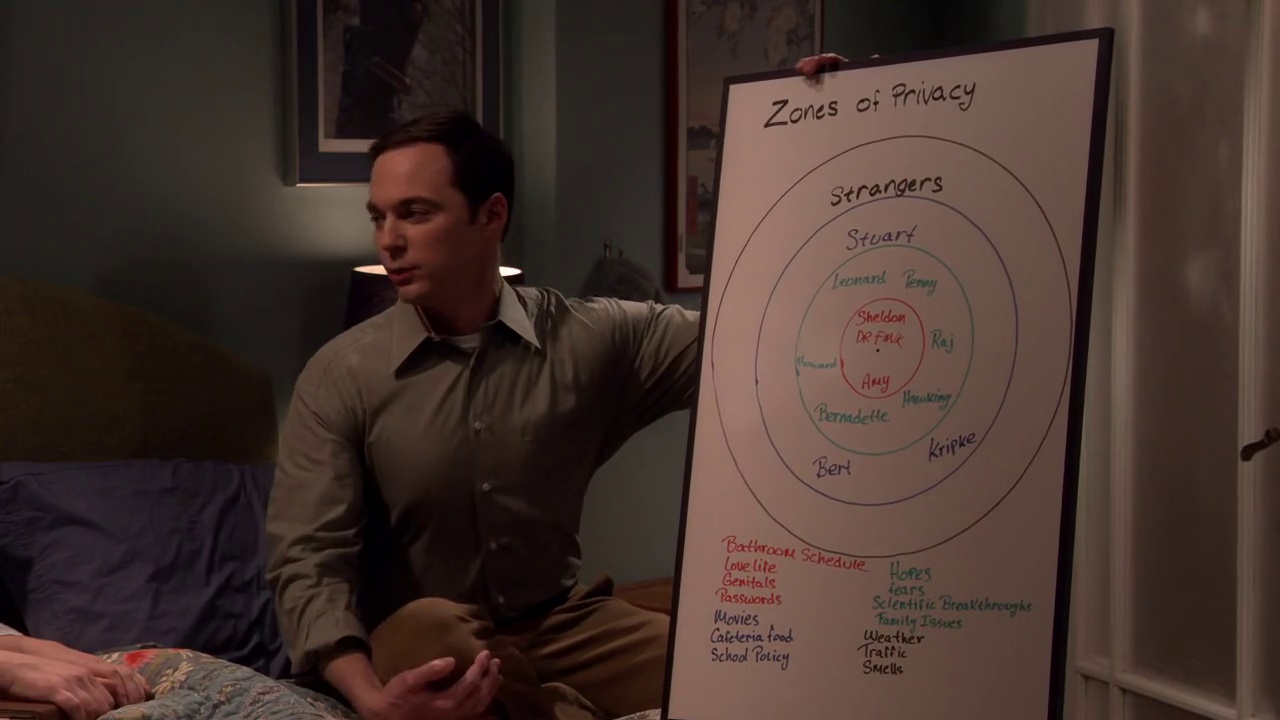 Zones of Privacy
Strangers
Stuart
Leonard Penny
Sheldon
DR.FMLK
Raj
Howard
Amy
Hawking
Bernadette
Kripke
Bert
Bathroom Schedule
Love life
Genitals
Passwords
Movies
Cafeteria food
School Policy
Hopes
fears
Scientific Breakthroughs
Family Issues
Weather
Traffic
Smells